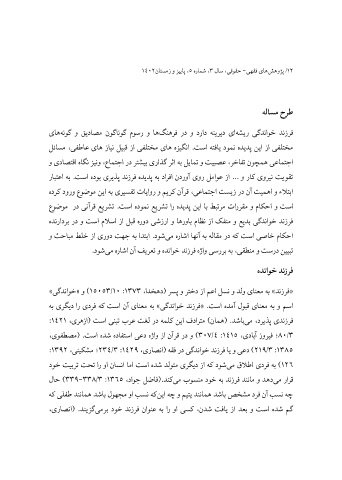 ۱۲/ پژوهش‌های فقهی- حقوقی، سال ۳، شماره ۵، پاییز و زمستان۱۴۰۲
طرح مساله
فرزند خواندگی ریشه‌ای دیرینه دارد و در فرهنگ‌ها و رسوم گوناگون مصادیق و گونه‌های
مختلفی از این پدیده نمود یافته است. انگیزه های مختلفی از قبیل نیاز های عاطفی، مسائل
اجتماعی همچون تفاخر، عصبیت و تمایل به اثر گذاری بیشتر در اجتماع، ونیز نگاه اقتصادی و
تقویت نیروی کار و ... از عوامل روی آوردن افراد به پدیده فرزند پذیری بوده است. به اعتبار
ابتلاء و اهمیت آن در زیست اجتماعی، قرآن کریم و روایات تفسیری به این موضوع ورود کرده
است و احکام و مقررات مرتبط با این پدیده را تشریع نموده است. تشریع قرآنی در موضوع
فرزند خواندگی بدیع و منفک از نظام باورها و ارزشی دوره قبل از اسلام است و در بردارنده
احکام خاصی است که در مقاله به آنها اشاره می‌شود. ابتدا به جهت دوری از خلط مباحث و
تبیین درست و منطقی، به بررسی واژه فرزند خوانده و تعریف آن اشاره می‌شود.
فرزند خوانده
«فرزند» به معنای ولد و نسل اعم از دختر و پسر (دهخدا، ۱۳۷۳: ۱۵۰۵۳/۱۰) و «خواندگی»
اسم و به معنای قبول آمده است. «فرزند خواندگی» به معنای آن است که فردی را دیگری به
فرزندی پذیرد، می‌باشد. (همان) مترادف این کلمه در لغت عرب تبنی است (ازهری، ۱۴۲۱:
۸۰/۳؛ فیروز آبادی، ۱۴۱۵: ۳۰۷/۴) و در قرآن از واژه دعی استفاده شده است. (مصطفوی،
۱۳۸۵: ۲۱۹/۳) دعی و یا فرزند خواندگی در فقه (انصاری، ۱۴۲۹: ۲۳۴/۳؛ مشکینی، ۱۳۹۲:
۱۲۶) به فردی اطلاق می‌شود که از دیگری متولد شده است اما انسان او را تحت تربیت خود
قرار می‌دهد و مانند فرزند به خود منسوب می‌کند.(فاضل جواد، ۱۳۶۵: ۳۳۸/۳-۳۳۹) حال
چه نسب آن فرد مشخص باشد همانند یتیم و چه این‌که نسب او مجهول باشد همانند طفلی که
گم شده است و بعد از یافت شدن، کسی او را به عنوان فرزند خود برمی‌گزیند. (انصاری،